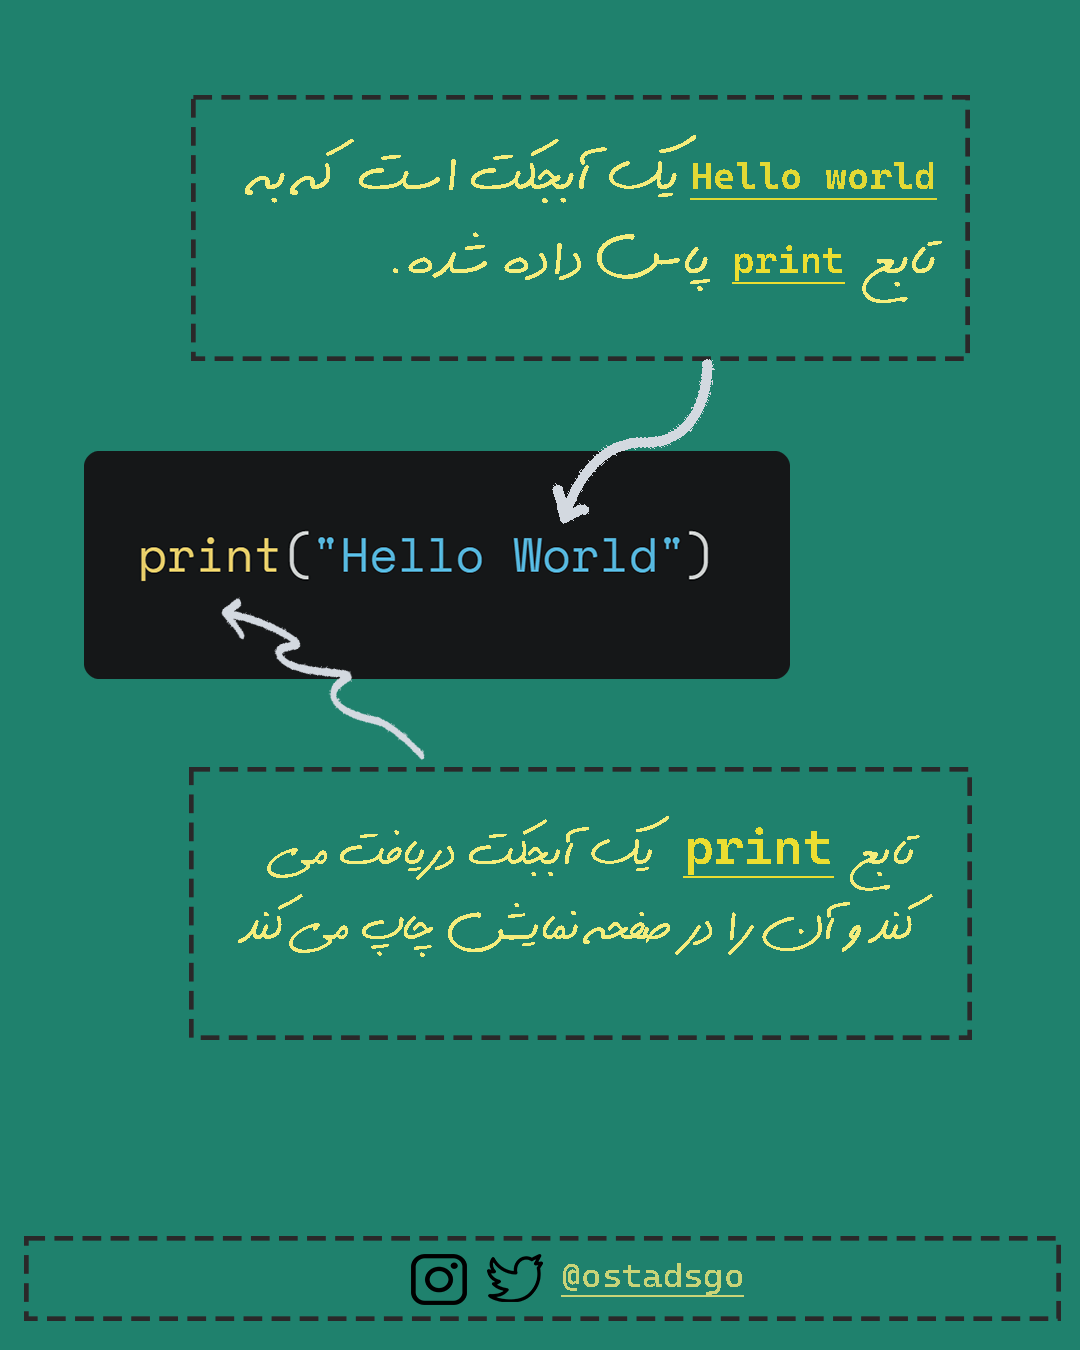 Hello world یک آبجکت است که به
تابع print پاس داده شده.
print("Hello World")
تابع print یک آبجکت دریافت می
کند و آن را در صفحه نمایش چاپ می کند
@ostadsgo